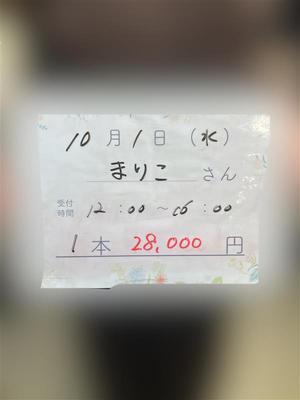 10月1日（水）
まりこ さん
受付時間 12：00～06：00
1本 28,000円